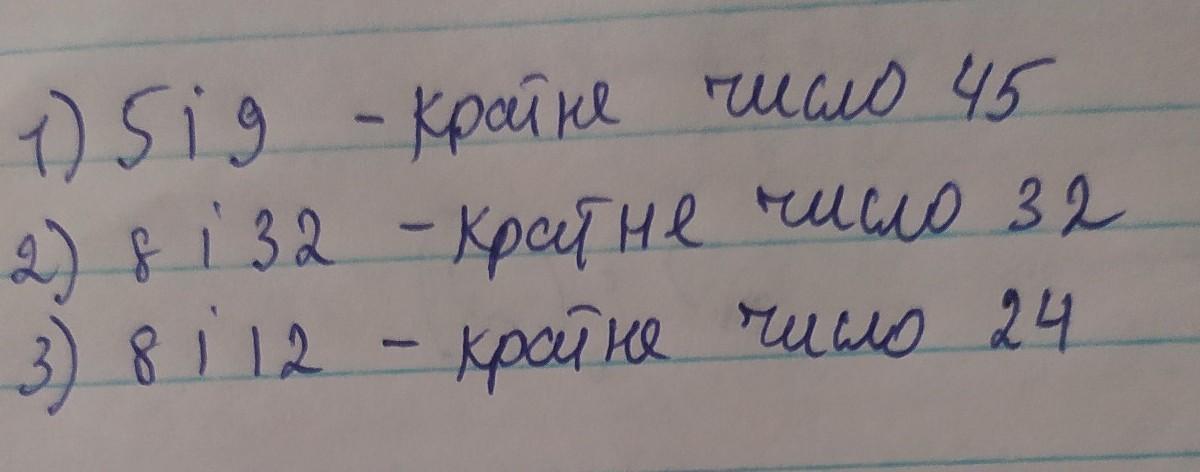 1) 5 і 9 - кратне число 45
2) 8 і 32 - кратне число 32
3) 8 і 12 - кратне число 24